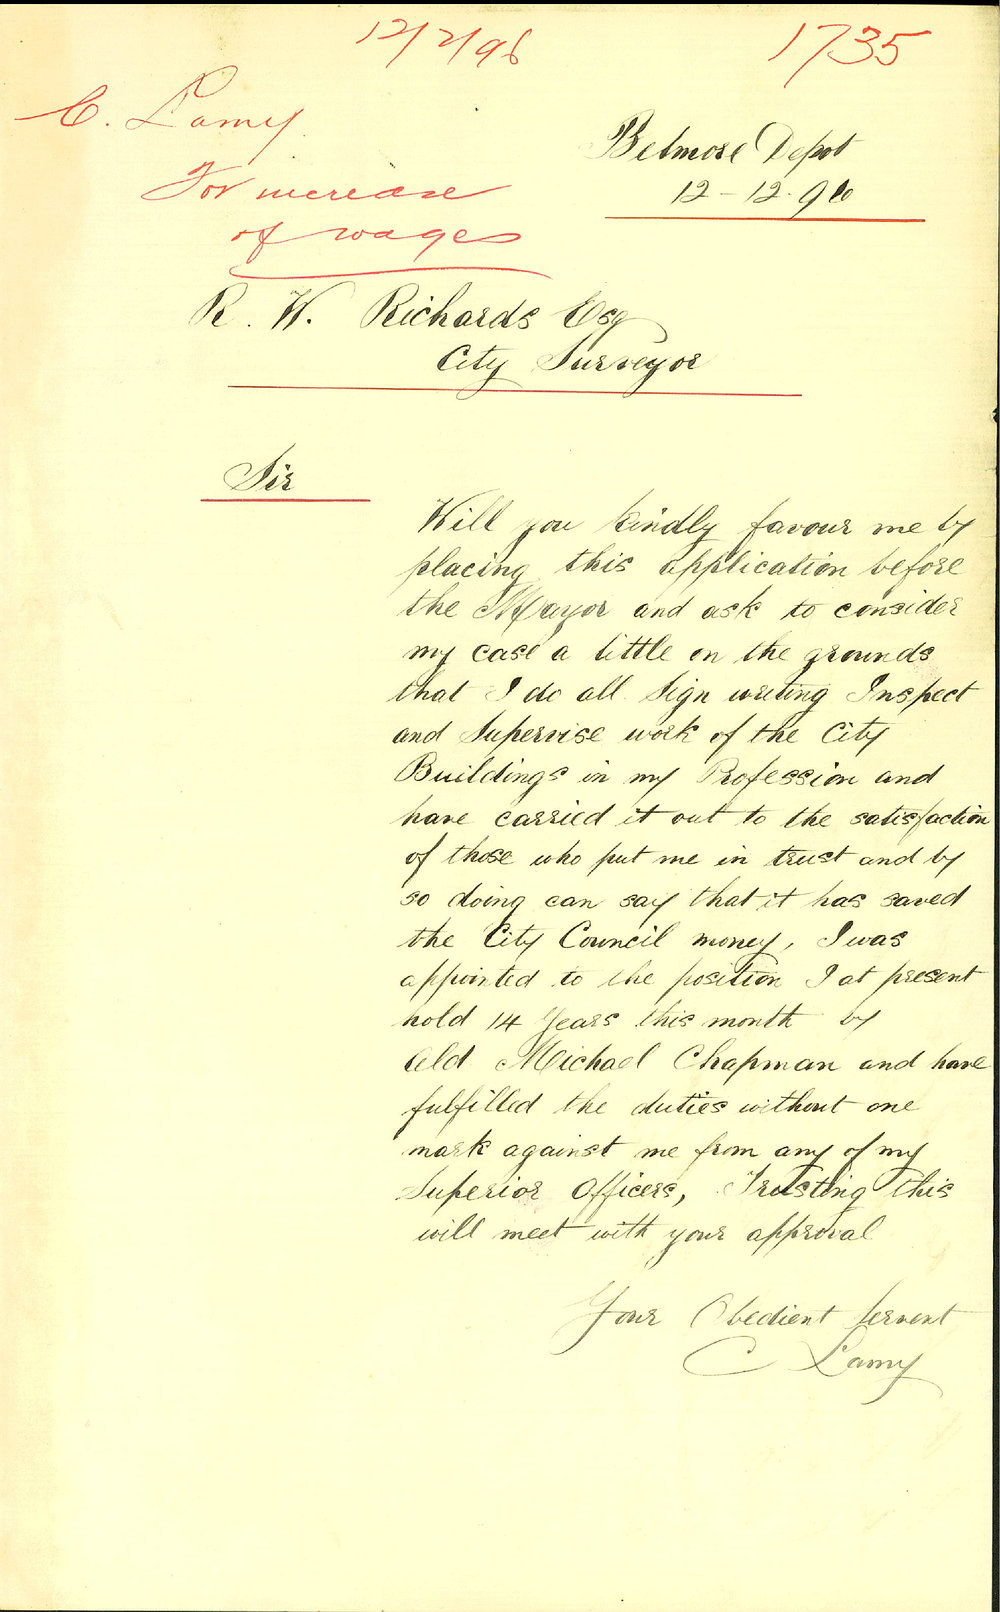 12/2/96
1735
C. Lamy
For increase
of wages
Belmore Depot
12-12-96
R. W. Richards Esq
City Surveyor
Sir
Will you kindly favour me by
placing this application before
the Mayor and ask to consider
my case a little on the grounds
that I do all Sign writing Inspect
and Supervise work of the City
Buildings in my Profession and
have carried it out to the satisfaction
of those who put me in trust and by
so doing can say that it has saved
the City Council money, I was
appointed to the position I at present
hold 14 Years this month by
Ald Michael Chapman and have
fulfilled the duties without one
mark against me from any of my
Superior Officers, Trusting this
will meet with your approval
Your Obedient Servent
C Lamy